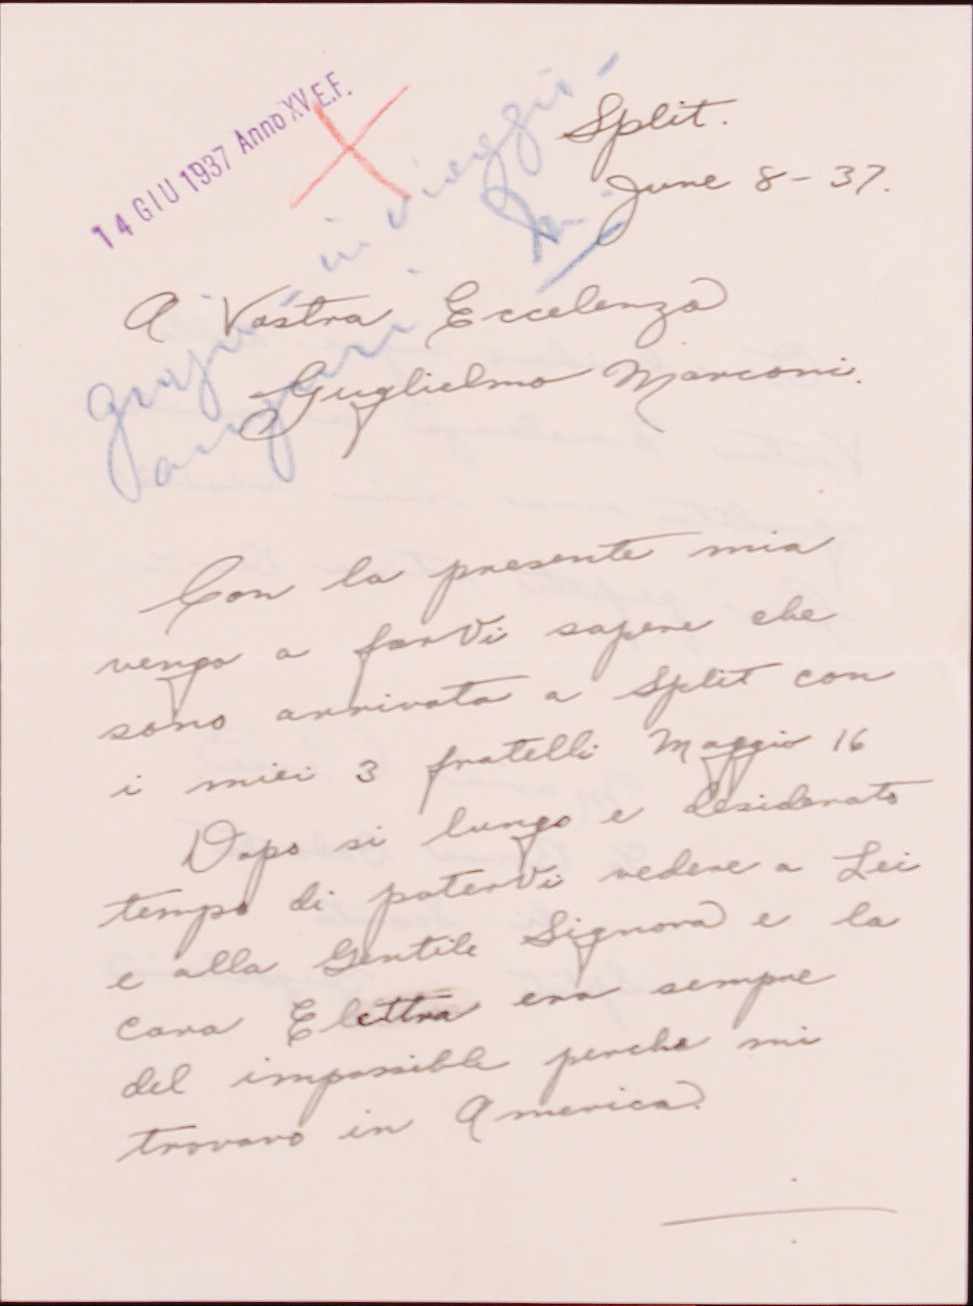 14 GIU 1937 Anno XV E.F.
in viaggio
Split.
June 8-37.
A Vostra Eccelenza
Guglielmo Marconi.
grazie
auguri
Con la presente mia
vengo a farVi sapere che
sono arrivata a Split con
i miei 3 fratelli Maggio 16
Dopo si lungo e desiderato
tempo di poterVi vedere a Lei
e alla Gentile Signora e la
cara Elettra era sempre
del impossible perche mi
trovavo in America.